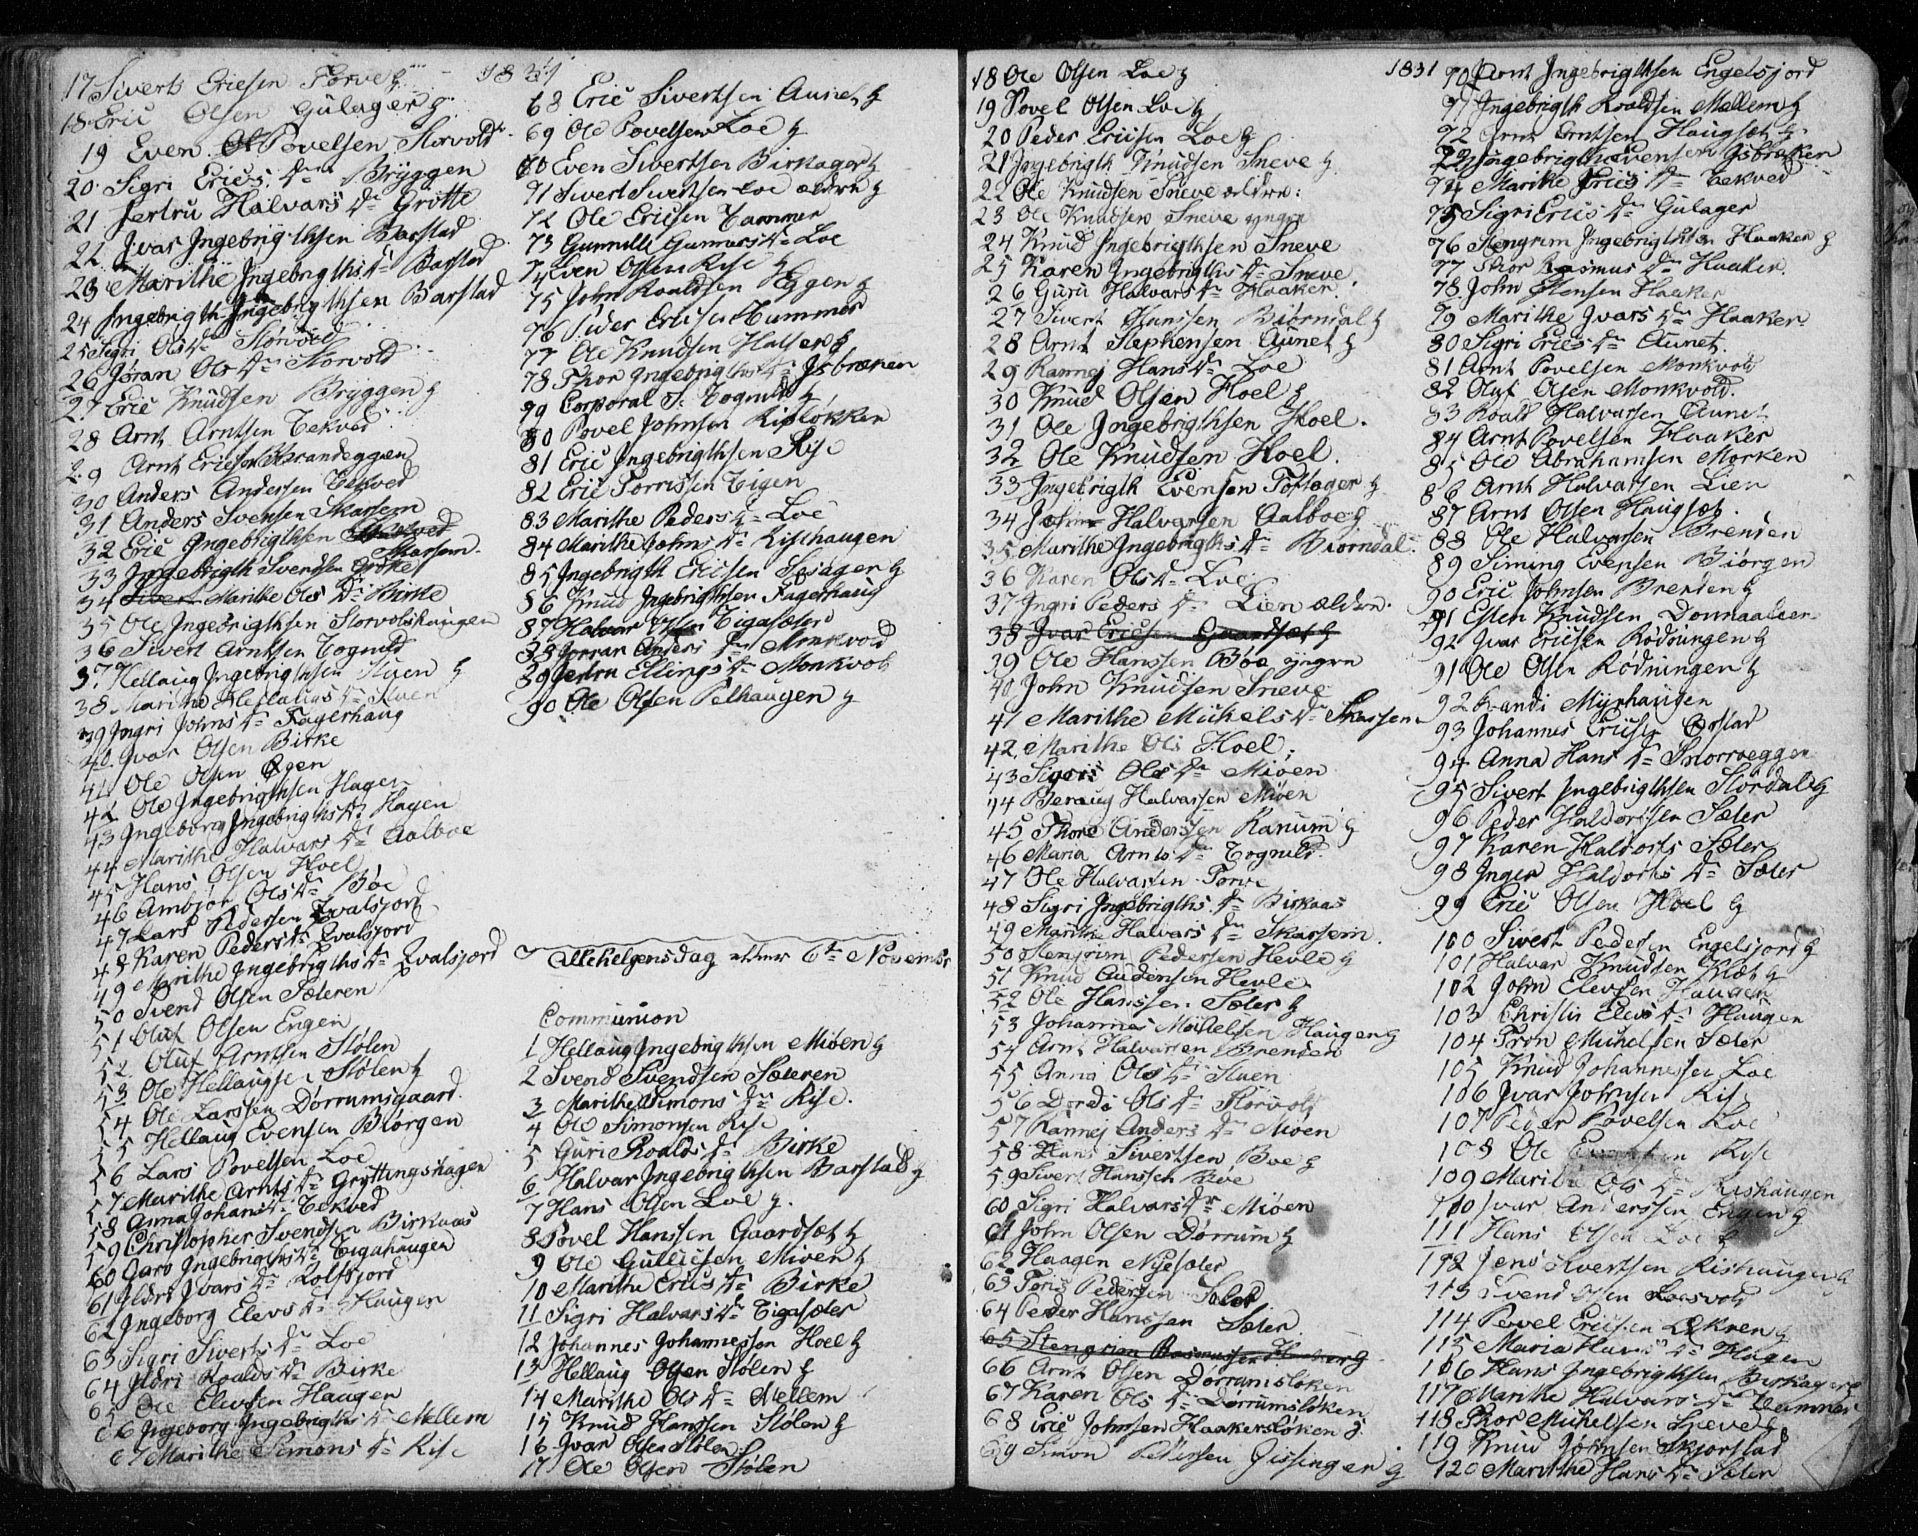 1831
17 Sivert Ericsen Torve
18 Eric Olsen Gulager
19 Even Povelsen Storvold
20 Sigri Erics Dr Bryggen
21 Jertru Halvars Dr Grötte
22 Jvar Jngebrigthsen Barstad
23 Marithe Jngebrigths Dr Barstad
24 Jngebrigth Jngebrigthsen Barstad
25 Sigri Ols Dr Storvold
26 Jøran Ols Dr Storvold
27 Eric Knudsen Bryggen
28 Arnt Arntsen Tekved
29 Arnt Ericsen Brandeggen
30 Anders Andersen Tekved
31 Anders Svensen Skarsem
32 Eric Jngebrigthsen
Skarsem
33 Jngebrigth Svendsen
34 Marithe Ols Dr Birke
35 Ole Jngebrigthsen Storvolshaugen
36 Sivert Arntsen Tognild
37 Hellaug Jngebrigthsen Stuen
38 Marithe Hellaugs Dr Stuen
39 Jngri Johns Dr Fagerhaug
40 Jvar Olsen Birke
41 Ole Olsen
42 Ole Jngebrigthsen Hagen
43 Jngeborg Jngebrigths Dr Hagen
44 Marithe Halvars Dr Aalboe
45 Hans Olsen Hoel
46 Ambjør Ols Dr Böe
47 Lars Pedersen Evalsjord
48 Karen Peders Dr Evalsjord
49 Marithe Jngebrigths Dr Evalsjord
50 Svend Olsen Sæteren
51 Oluf Olsen Engen
52 Oluf Arntsen Stölen
53 Ole Hellaugse Stölen
54 Ole Larssen Dørrumsgaard
55 Hellaug Evensen Biörgen
56 Lars Povelsen Loe
57 Marithe Arnts Dr Gryttingshagen
58 Anna Johans Dr Tekved
59 Christopher Svendsen Birkaas
60 Jngebrigths Dr Tigahaugen
61 Jldri Jvars Dr Rolfsjord
62 Jngeborg Elevs Dr Haugen
63 Sigri Siverts Dr Loe
64 Jldri Roalds Dr Birke
65 Ole Elevsen Haugen
66 Jngeborg Jngebrigths Dr Mellem
67 Marithe Simons Dr Rise
68 Eric Sivertsen Aunet
69 Ole Povelsen Loe
70 Even Sivertsen Birkager
71 Sivert Sivertsen Loe ældre
72 Ole Ericsen Tammer
73 Gunnild Gunnars Dr Loe
74 Even Olsen Rise
75 John Roaldsen Eggen
76 Peder Ericsen Hummer
77 Ole Knudsen Halse
78 Thor Jngebrigths Dr Jsbraken
79 Corporal Tognild
80 Povel Johnsen Risløkken
81 Eric Jngebrigthsen Rise
82 Eric Torrissen Tigen
83 Marithe Peders Dr Loe
84 Marithe Johns Dr Rishaugen
85 Jngebrigth Ericsen
86 Knud Jngebrigthsen Fagerhaug
87 Halvor Olsen Tigasæter
88 Jorran Anders Dr Monkvold
89 Jertru Ellings Dr Monkvold
90 Ole Olsen Pelhaugen
Allehelgensdag 6te November
Communion
1 Hellaug Jngebrigthsen Miöen
2 Svend Svendsen Sæteren
3 Marithe Simons Dr Rise
4 Ole Simonsen Rise
5 Guri Roalds Dr Birke
6 Halvar Jngebrigthsen Barstad
7 Hans Olsen Loe
8 Povel Hanssen Gaardsæt
9 Ole Gulliksen Miöen
10 Marithe Erics Dr Birke
11 Sigri Halvars Dr Tigasæter
12 Johannes Johannessen Hoel
13 Hellaug Olsen Stölen
14 Marithe Ols Dr Mellem
15 Knud Hanssen Stölen
16 Jvar Olsen Stölen
17 Ole Olsen Stölen
1831
18 Ole Olsen Loe
19 Povel Olsen Loe
20 Peder Ericsen Loe
21 Jngebrigth Knudsen Sneve
22 Ole Knudsen Sneve ældre
23 Ole Knudsen Sneve yngre
24 Knud Jngebrigthsen Sneve
25 Karen Jngebrigths Dr Sneve
26 Guru Halvars Dr Haaker
27 Sivert Hanssen Biörndal
28 Arnt Stephensen Aunet
29 Rannej Hans Dr Loe
30 Knud Olsen Hoel
31 Ole Jngebrigthsen Hoel
32 Ole Knudsen Hoel
33 Jngebrigth Evensen Toftager
34 John Halvarsen Aalboe
35 Marithe Jngebrigths Dr Biörndal
36 Karen Ols Dr Loe
37 Jngri Peders Dr Lien ældre
38 Jvar Ericsen Gaardsæt
39 Ole Hanssen Böe yngre
40 John Knudsen Sneve
41 Marithe Michels Dr Skarsem
42 Marithe Ols Hoel
43 Sigris Ols Dr Miöen
44 Beraug Halvarsen Miöen
45 Thore Anderssen Ranum
46 Maria Arnts Dr Tognild
47 Ole Halvarsen Torve
48 Sigri Jngebrigths Dr Birkaas
49 Marithe Halvars Dr Skarsem
50 Stengrim Pedersen Hevle
51 Knud Audensen Hevle
52 Ole Hanssen Sæter
53 Johannes Michelsen Haugen
54 Arnt Halvarsen Brenden
55 Anne Ols Dr Stuen
56 Dordi Ols Dr Storvold
57 Rannej Anders Dr Miöen
58 Hans Sivertsen Boe
59 Sivert Hanssen Böe
60 Sigri Halvars Dr Miöen
61 John Olsen Dørrum
62 Haagen Nysæter
63 Toris Pedersen Sæter
64 Peder Hanssen Sæter
65 Stengrim Rasmussen Haaker
66 Arnt Olsen Dørrumsløken
67 Karen Ols Dr Dørrumsløken
68 Eric Johnsen Haakersløken
69 Simon Pedersen Gissinger
70 Arnt Jngebrigthsen Engelsjord
71 Jngebrigth Roaldsen Mellem
72 Arnt Arntsen Haugsæt
73 Jngebrigth Svensen Jsbraken
74 Marithe Erics Dr Tekved
75 Sigri Erics Dr Gulager
76 Stengrim Jngebrigthsen Haaker
77 Thor Rasmus Dr Haaker
78 John Stensen Haaker
79 Marithe Jvars Dr Haaker
80 Sigri Erics Dr Aunet
81 Arnt Povelsen Monkvold
82 Oluf Olsen Monkvold
83 Roald Halvarsen Aunet
84 Arnt Povelsen Haaker
85 Ole Abrahamsen Morken
86 Arnt Halvarsen Lien
87 Arnt Olsen Haugsæt
88 Ole Halvarsen Brenden
89 Siming Evensen Biörgen
90 Eric Johnsen Brenden
91 Esten Knudsen Donnaaleen
92 Jvar Ericsen Rødningen
91 Ole Olsen Rødningen
92 Randi Myrhaugen
93 Johannes Ericsen Barstad
94 Anna Hans Dr Storveggen
95 Sivert Jngebrigthsen Stordal
96 Peder Haldorsen Sæter
97 Karen Haldors Sæter
98 Jnger Haldors Dr Sæter
99 Eric Olsen Hoel
100 Sivert Pedersen Engelsjord
101 Halvar Knudsen Klæt
102 John Elevsen Haugen
103 Christie Elevs Dr Haugen
104 Tron Michelsen Sæter
105 Knud Johannessen Loe
106 Jvar Johnsen Rise
107 Peder Povelsen Loe
108 Ole Rise
109 Marithe Ols Dr Rishaugen
110 Jvar Anderssen Engen
111 Hans Olsen Loe
112 Jens Sivertsen Rishaugen
113 Svend Olsen Loesvold
114 Povel Ericsen Ekren
115 Maria Hans Dr Hagen
116 Hans Jngebrigthsen Birkager
117 Marithe Halvars Dr Dammen
118 Thor Michelsen Sneve
119 Knud Johnsen Skjørstad
120 Marithe Hans Dr Sæter